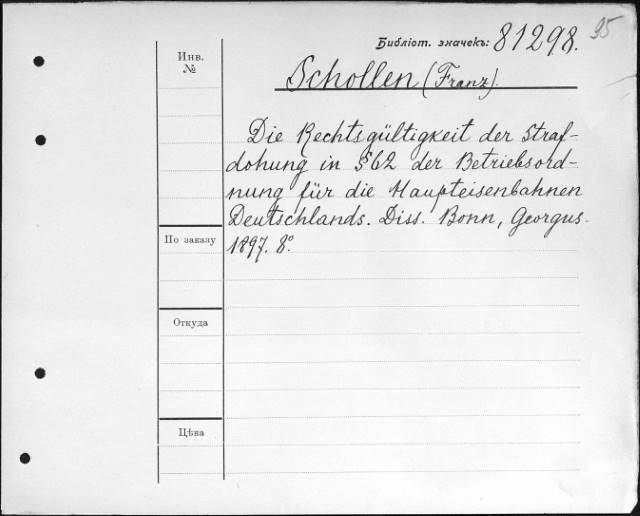 Библіот. значекъ: 81298. 95
Инв.
№
Schollen (Franz).
Die Rechtsgültigkeit der Straf-
dohung in §62 der Betriebsord-
nung für die Haupteisenbahnen
Deutschlands. Diss. Bonn, Georgus.
1897. 8°.
По заказу
Откуда
Цѣна